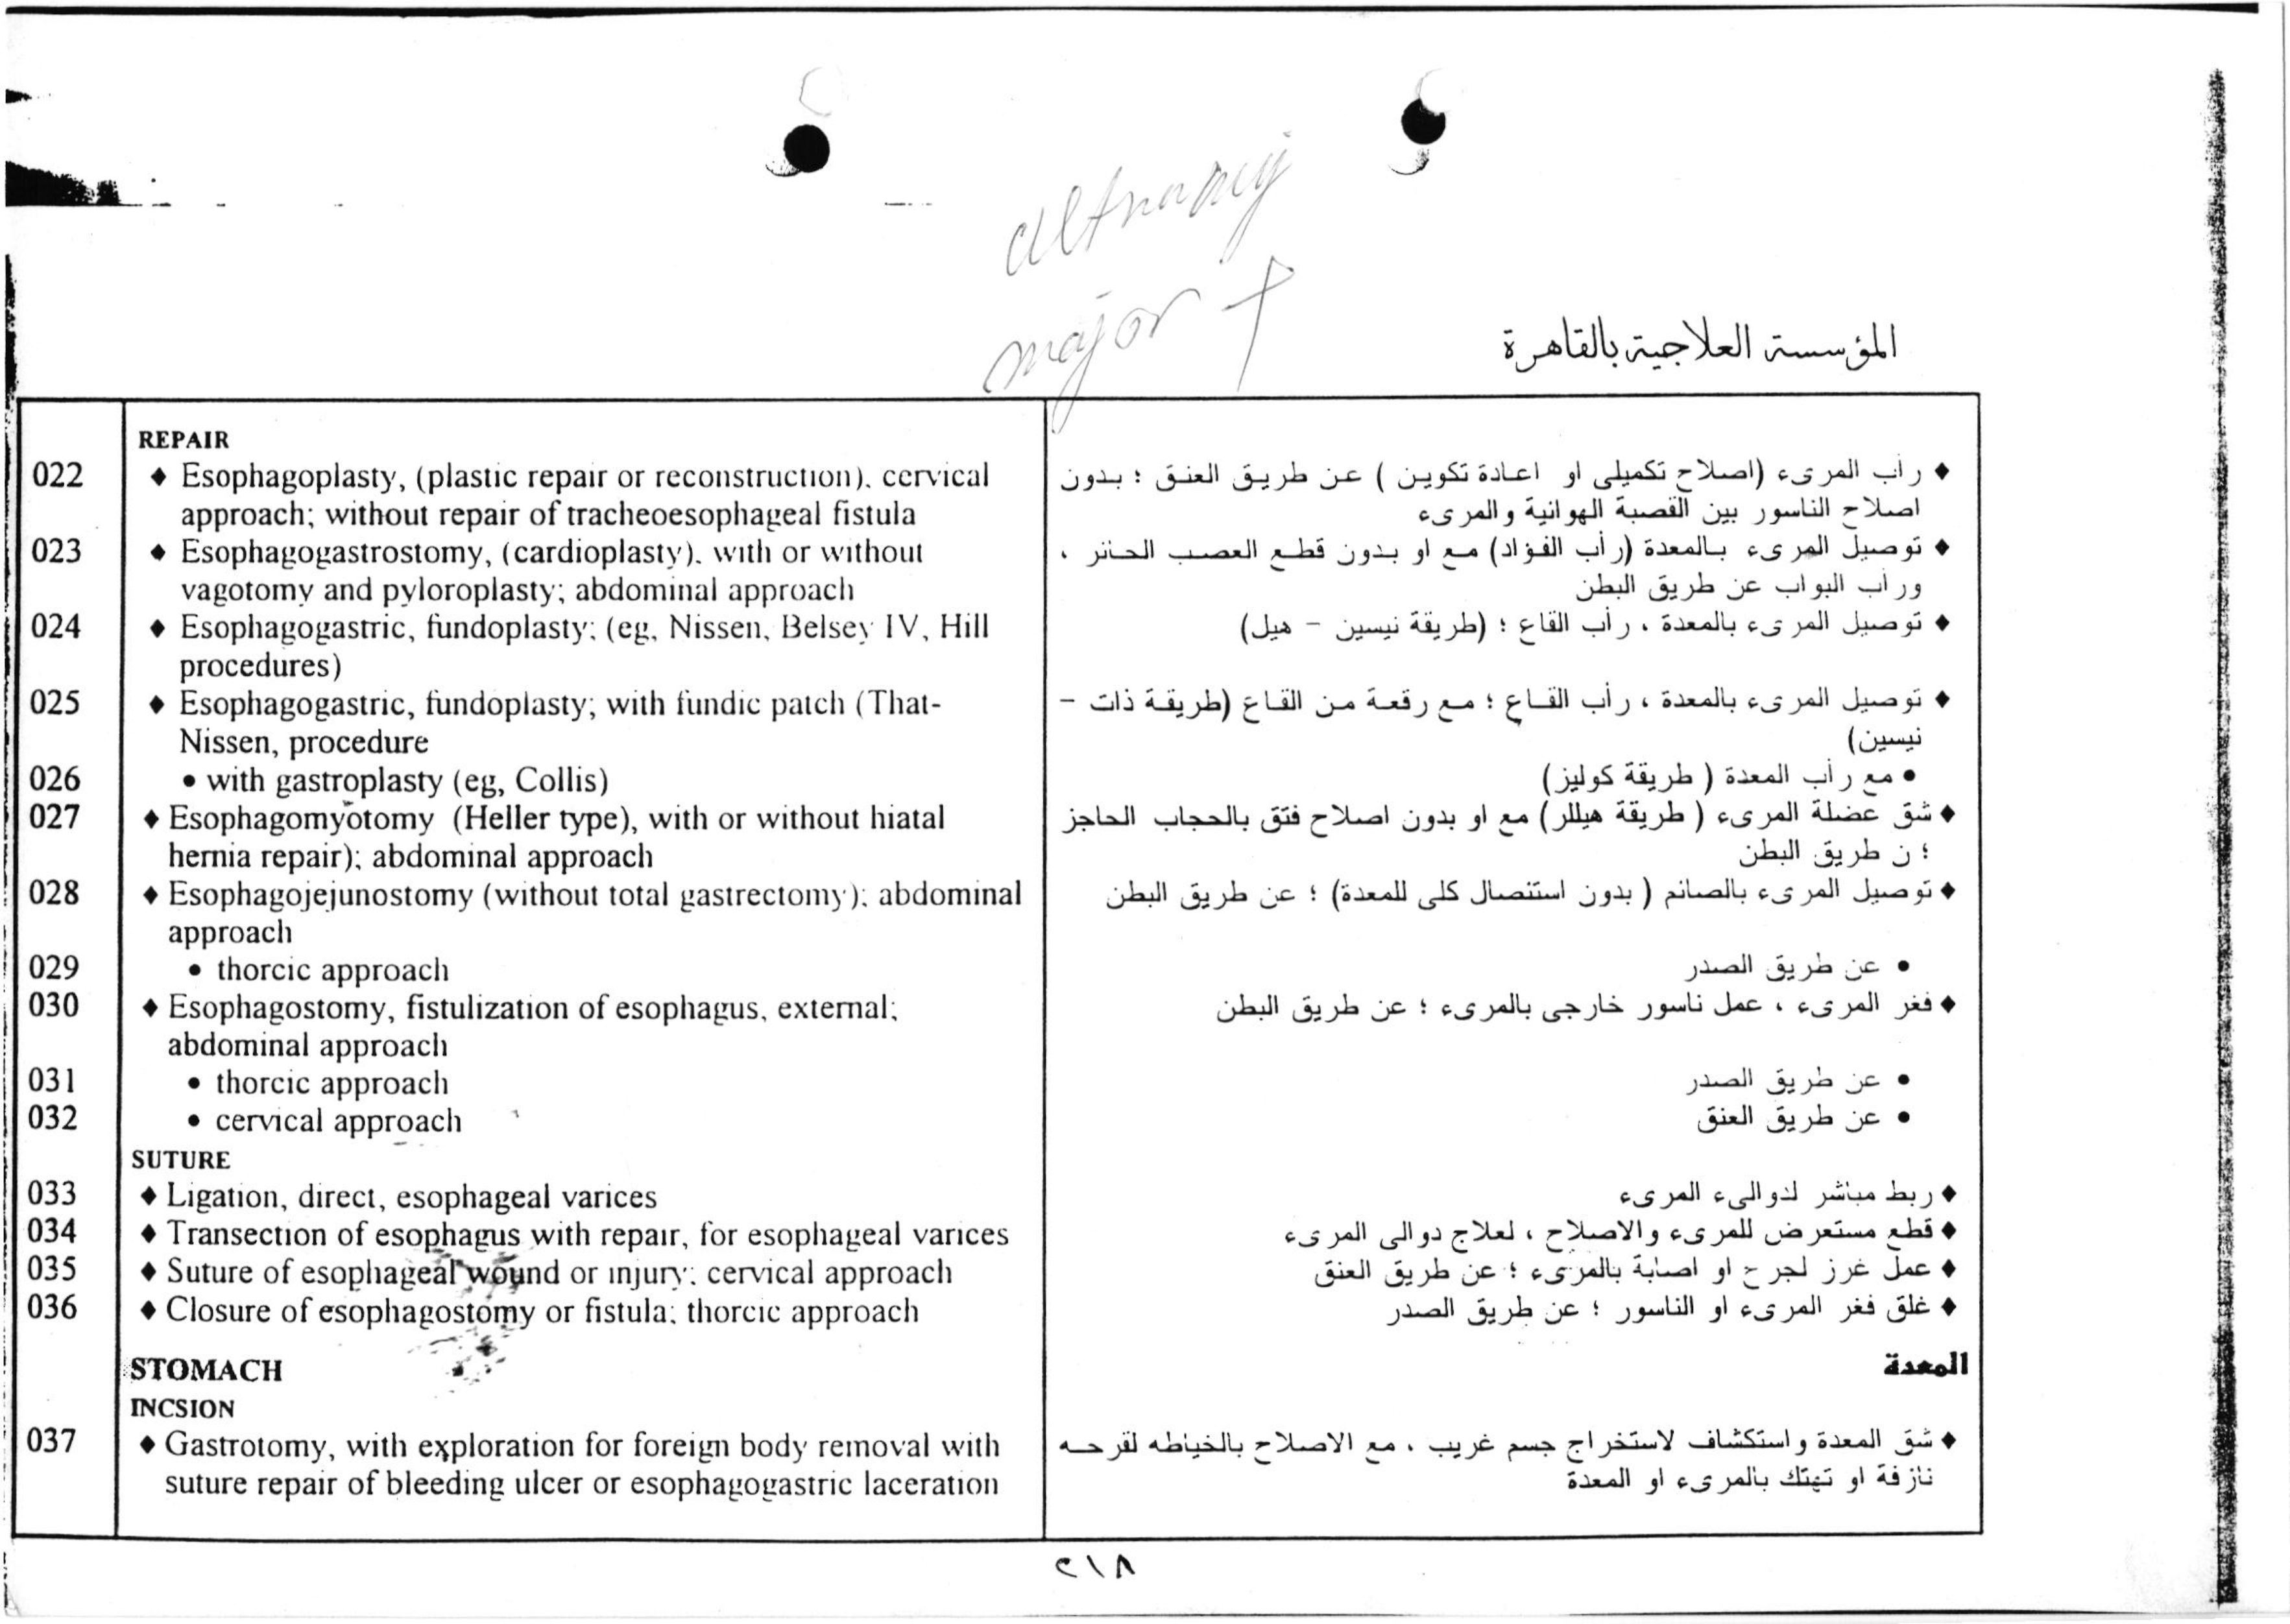 major
المؤسسة العلاجية بالقاهرة
REPAIR
022 ♦ Esophagoplasty, (plastic repair or reconstruction). cervical
approach; without repair of tracheoesophageal fistula
♦ رأب المرىء (اصلاح تكميلى او اعادة تكوين ) عن طريق العنق ؛ بدون
اصلاح الناسور بين القصبة الهوائية والمرىء
023 ♦ Esophagogastrostomy, (cardioplasty). with or without
vagotomy and pyloroplasty; abdominal approach
♦ توصيل المرىء بالمعدة (رأب الفؤاد) مع او بدون قطع العصب الحائر ،
ورأب البواب عن طريق البطن
024 ♦ Esophagogastric, fundoplasty; (eg, Nissen, Belsey IV, Hill
procedures)
♦ توصيل المرىء بالمعدة ، رأب القاع ؛ (طريقة نيسين – هيل)
025 ♦ Esophagogastric, fundoplasty; with fundic patch (That-
Nissen, procedure
♦ توصيل المرىء بالمعدة ، رأب القاع ؛ مع رقعة من القاع (طريقة ذات –
نيسين)
026 • with gastroplasty (eg, Collis)
• مع رأب المعدة ( طريقة كوليز)
027 ♦ Esophagomyotomy (Heller type), with or without hiatal
hernia repair); abdominal approach
♦ شق عضلة المرىء ( طريقة هيللر) مع او بدون اصلاح فتق بالحجاب الحاجز
؛ ن طريق البطن
028 ♦ Esophagojejunostomy (without total gastrectomy); abdominal
approach
♦ توصيل المرىء بالصائم ( بدون استئصال كلى للمعدة) ؛ عن طريق البطن
029 • thorcic approach
• عن طريق الصدر
030 ♦ Esophagostomy, fistulization of esophagus, external;
abdominal approach
♦ فغر المرىء ، عمل ناسور خارجى بالمرىء ؛ عن طريق البطن
031 • thorcic approach
• عن طريق الصدر
032 • cervical approach
• عن طريق العنق
SUTURE
033 ♦ Ligation, direct, esophageal varices
♦ ربط مباشر لدوالىء المرىء
034 ♦ Transection of esophagus with repair, for esophageal varices
♦ قطع مستعرض للمرىء والاصلاح ، لعلاج دوالى المرىء
035 ♦ Suture of esophageal wound or injury; cervical approach
♦ عمل غرز لجرح او اصابة بالمرىء ؛ عن طريق العنق
036 ♦ Closure of esophagostomy or fistula; thorcic approach
♦ غلق فغر المرىء او الناسور ؛ عن طريق الصدر
STOMACH
المعدة
INCSION
037 ♦ Gastrotomy, with exploration for foreign body removal with
suture repair of bleeding ulcer or esophagogastric laceration
♦ شق المعدة واستكشاف لاستخراج جسم غريب ، مع الاصلاح بالخياطه لقرحه
نازفة او تهتك بالمرىء او المعدة
٢١٨